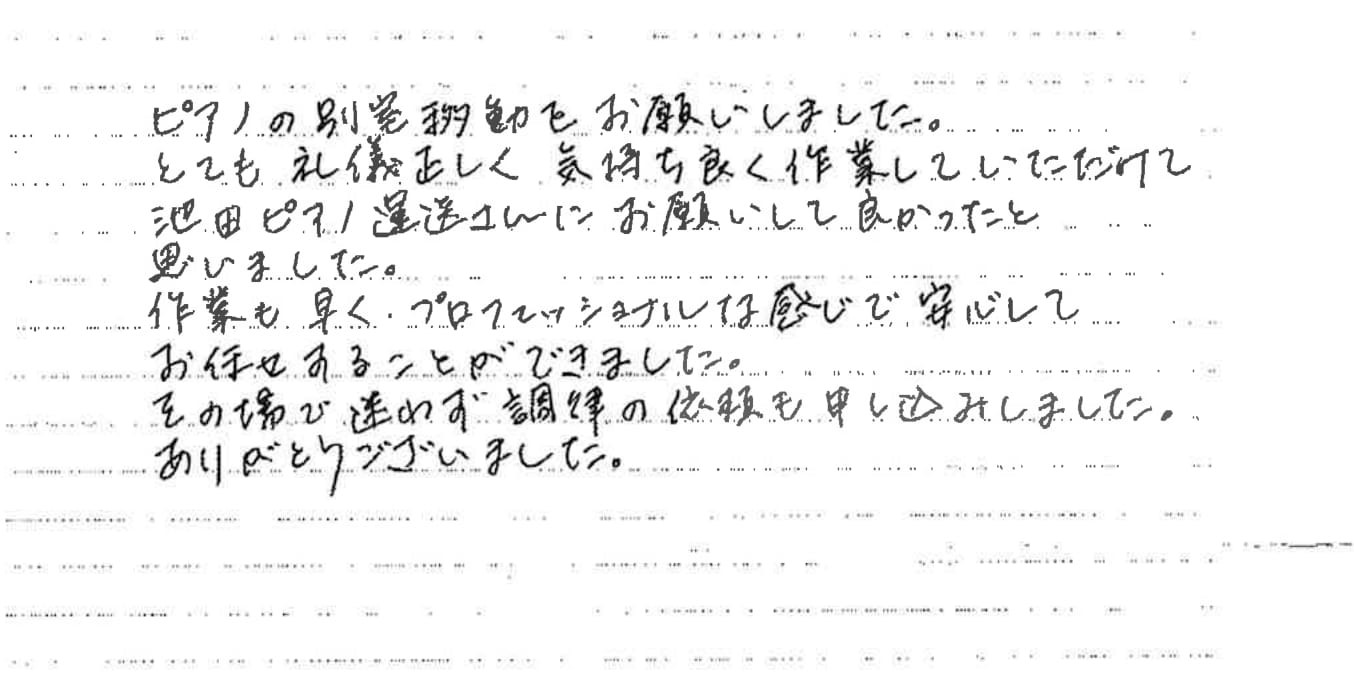 ピアノの別宅移動をお願いしました。
とても礼儀正しく気持ち良く作業していただけて
池田ピアノ運送さんにお願いして良かったと
思いました。
作業も早く、プロフェッショナルな感じで安心して
お任せすることができました。
その場で迷わず調律の依頼も申し込みしました。
ありがとうございました。